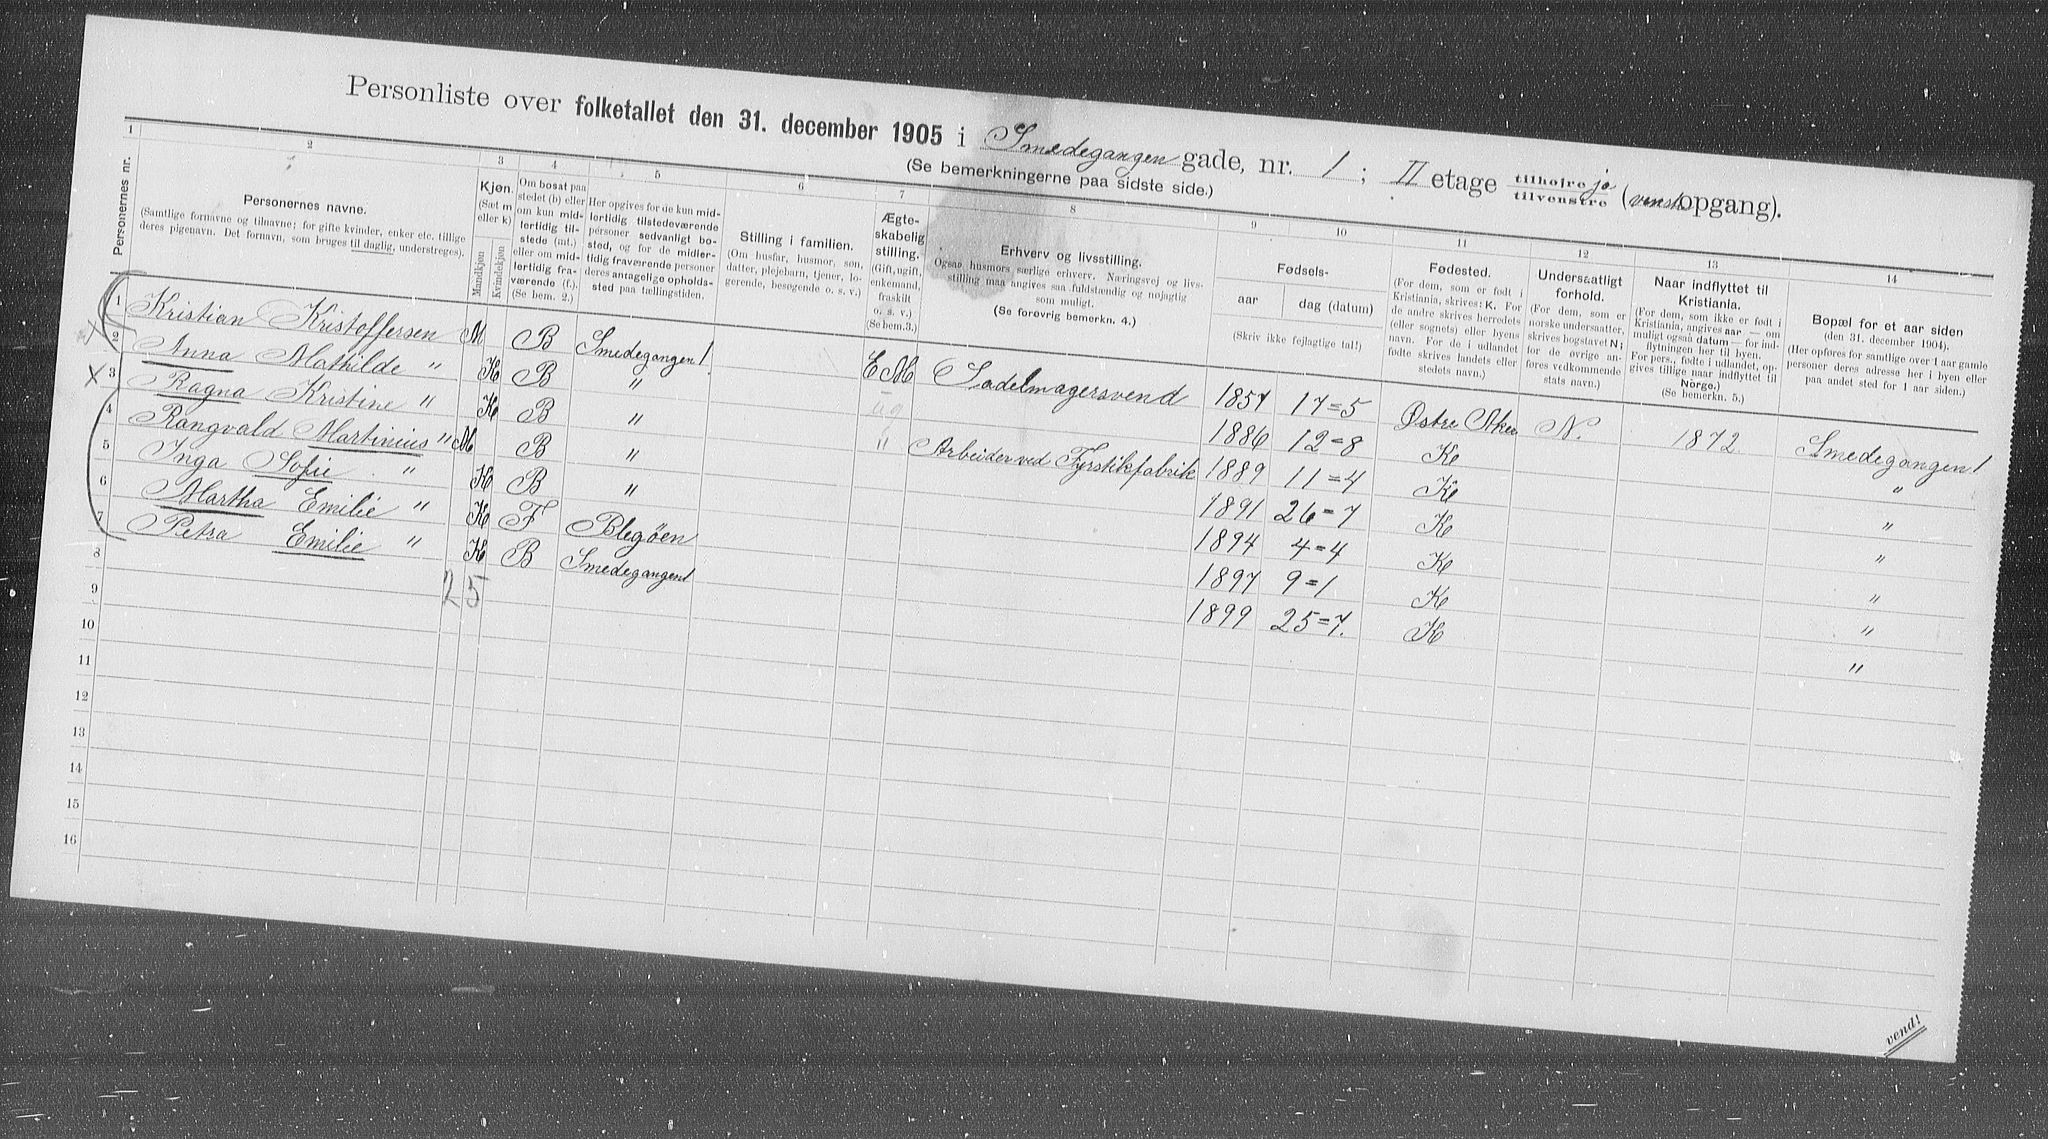 Personliste over folketallet den 31. december 1905 i Smedegangen gade, nr. 1; II etage tilhøjre ja tilvenstre (venstre opgang).
(Se bemerkningerne paa sidste side.)
1 2 3 4 5 6 7 8 9 10 11 12 13 14
Personernes nr.
Personernes navne.
(Samtlige fornavne og tilnavne; for gifte kvinder, enker etc. tillige
deres pigenavn. Det fornavn, som bruges til daglig, understreges).
Kjøn.
(Sæt m
eller k)
Mandkjøn
Kvindekjøn
Om bosat paa
stedet (b) eller
om kun mid-
lertidig til-
stede (mt.)
eller om mid-
lertidig fra-
værende (f.).
(Se bem. 2.)
Her opgives for de kun mid-
lertidig tilstedeværende
personer sedvanligt bo-
sted, og for de midler-
tidig fraværende personer
deres antagelige opholds-
sted paa tællingstiden.
Stilling i familien.
(Om husfar, husmor, søn,
datter, plejebarn, tjener, lo-
gerende, besøgende o. s. v.)
Ægte-
skabelig
stilling.
(Gift, ugift,
enkemand,
fraskilt
o. s. v.)
(Se bem.3.)
Erhverv og livsstilling.
Ogsaa husmors særlige erhverv. Næringsvej og livs-
stilling maa angives saa fuldstændig og nøjagtig
som muligt.
(Se forøvrig bemerkn. 4.)
Fødsels-
aar
dag (datum)
(Skriv ikke fejlagtige tal!)
Fødested.
(For dem, som er født i
Kristiania, skrives: K. For
de andre skrives herredets
(eller sognets) eller byens
navn. For de i udlandet
fødte skrives landets eller
stedets navn.)
Undersaatligt
forhold.
(For dem, som er
norske undersaatter,
skrives bogstavet N;
for de øvrige an-
føres vedkommende
stats navn.)
Naar indflyttet til
Kristiania.
(For dem, som ikke er født i
Kristiania, angives aar — om
muligt også datum — for ind-
flytningen her til byen.
For pers., fødte i udlandet, op-
gives tillige naar indflyttet til
Norge.)
(Se bemerkn. 5.)
Bopæl for et aar siden
(den 31. december 1904).
(Her opføres for samtlige over 1 aar gamle
personer deres adresse her i byen eller
paa andet sted for 1 aar siden.)
1 Kristian Kristoffersen M B Smedegangen 1 E M Sadelmagersvend 1857 17=5 Østre Aker N. 1872. Smedegangen 1
2 Anna Mathilde " K B " ug 1886 12=8 K "
3 Ragna Kristine " K B " " Arbeider ved Fyrstikfabrik 1889 11=4 K "
4 Rangvald Martinius " M B " 1891 26=7 K "
5 Inga Sofie " K B " 1894 4=4 K "
6 Martha Emilie " K F Blegøen 1897 9=1 K "
7 Petra Emilie " K B Smedegangen 1 1899 25=7. K "
25
8
9
10
11
12
13
14
15
16
vend!